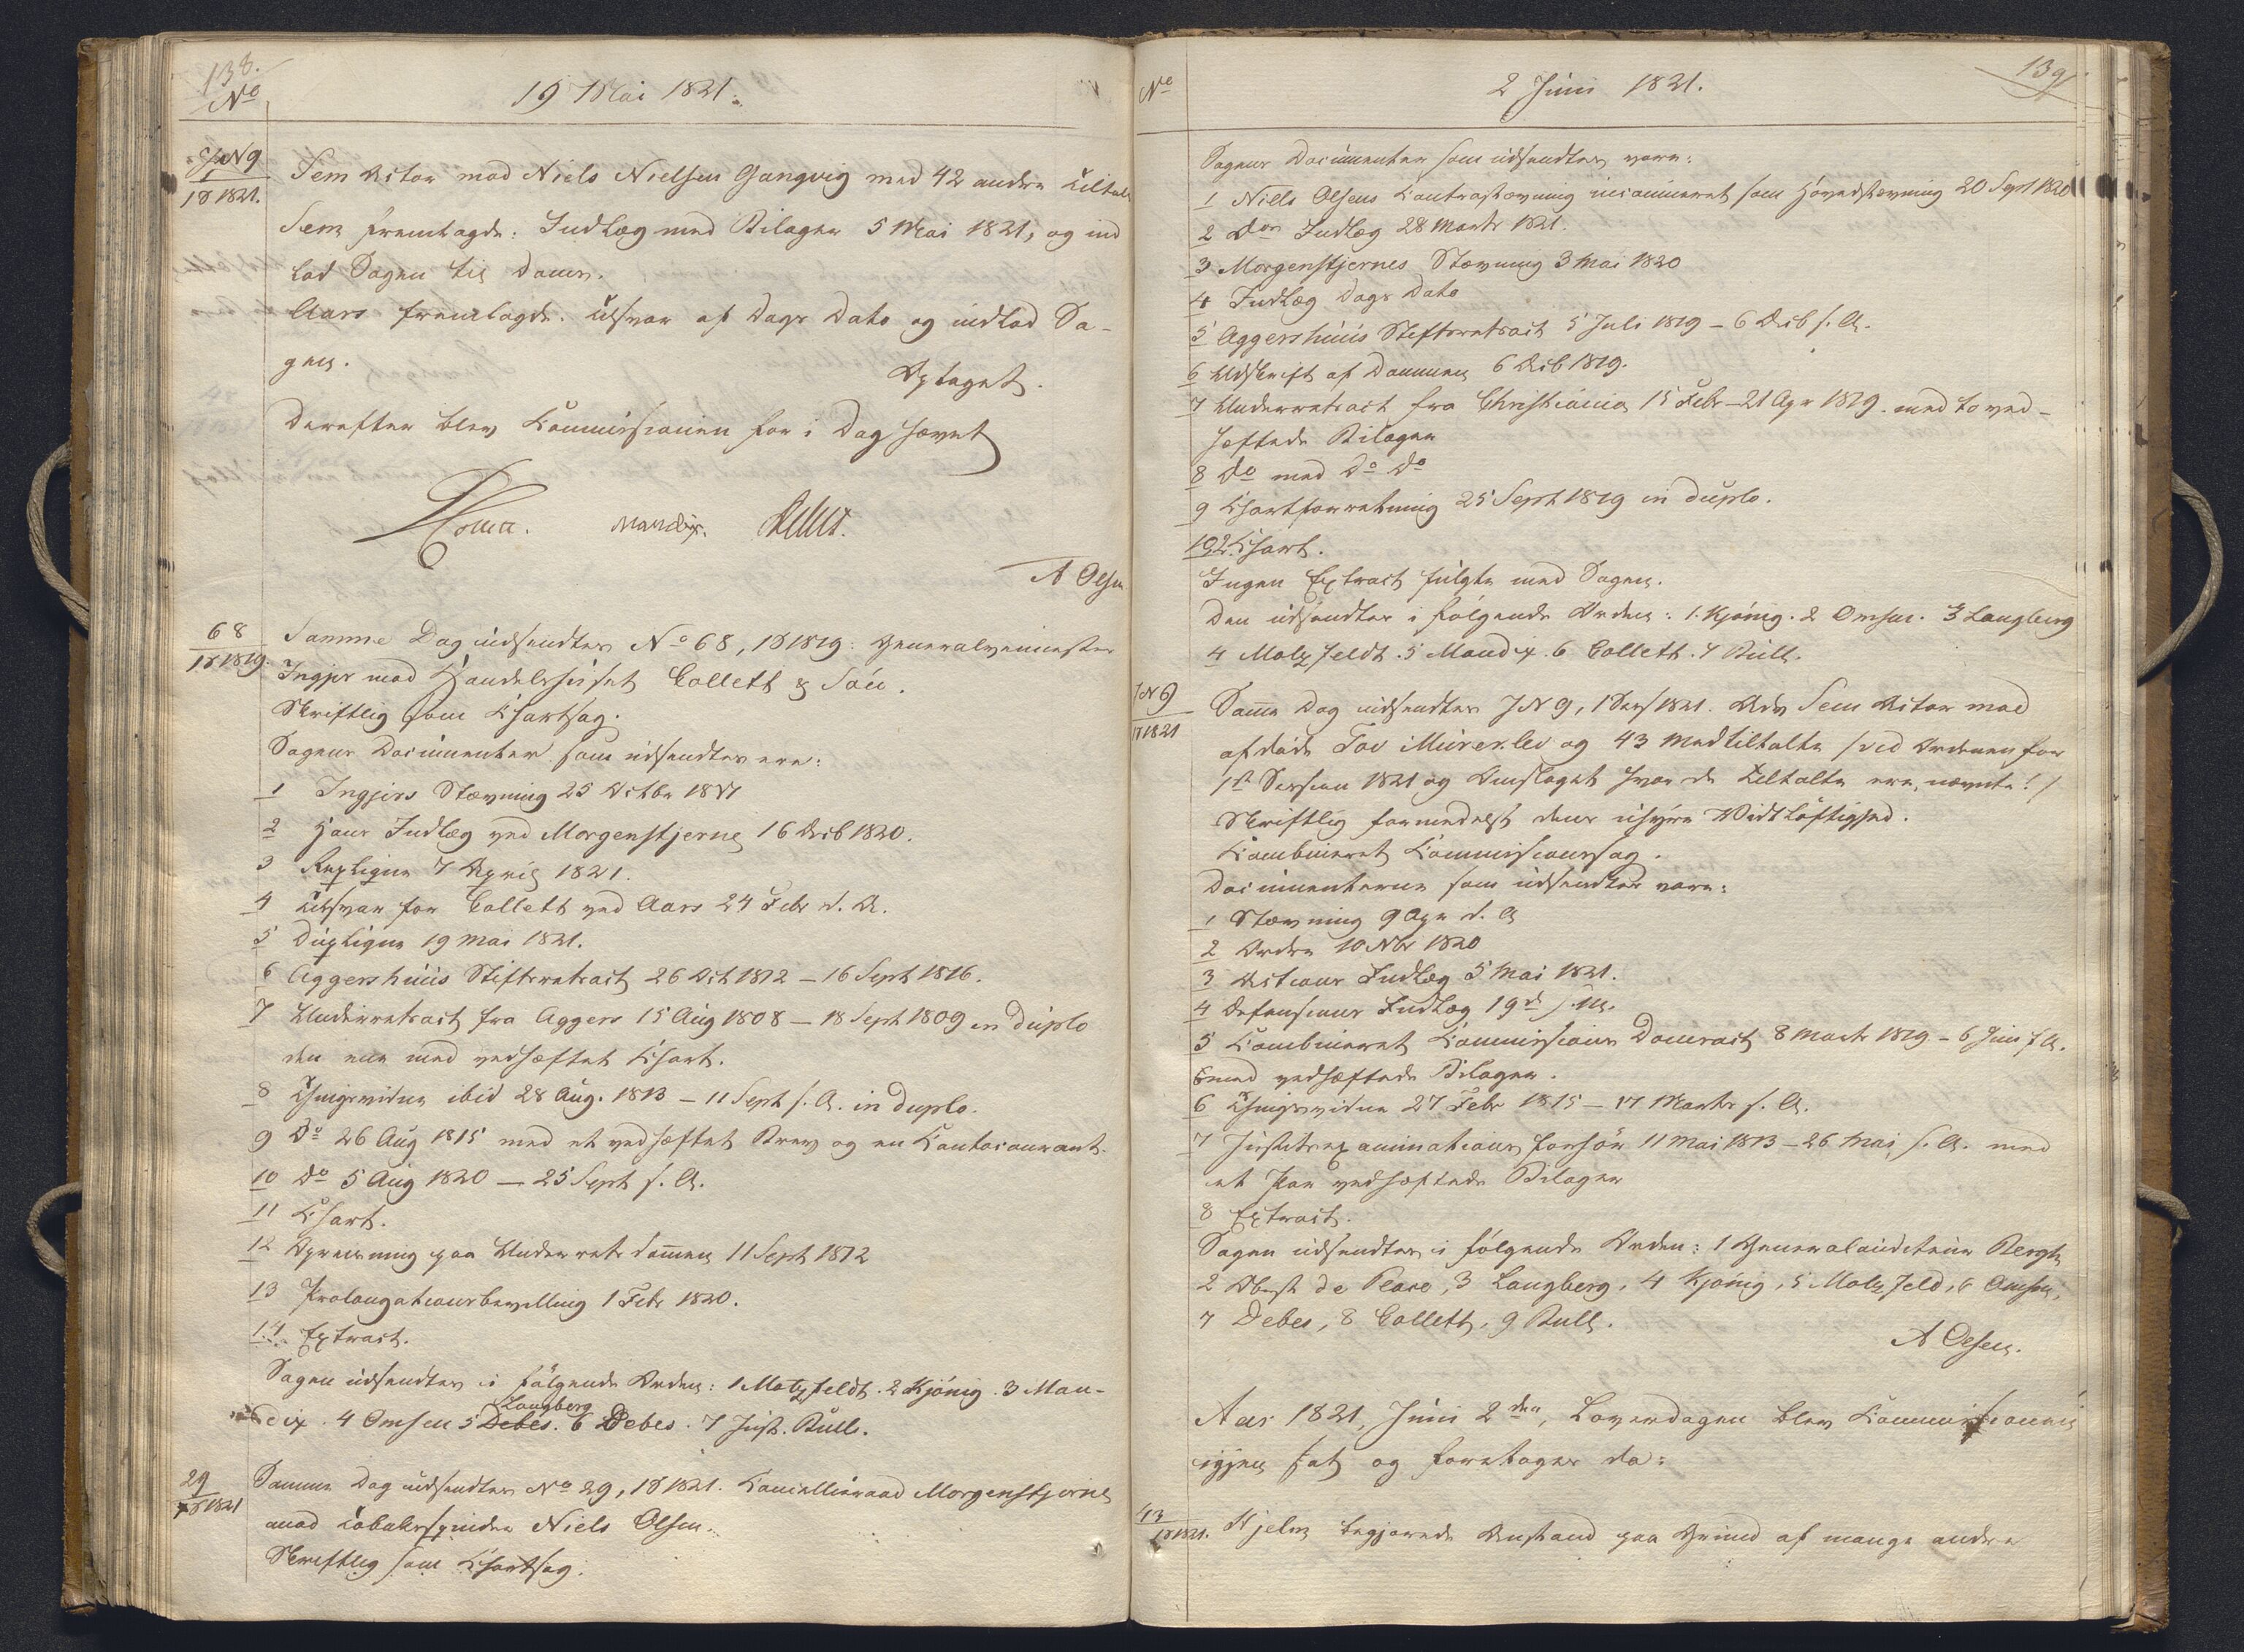 138.
No
19 Mai 1821.
JN 9
1S 1821.
Sem Actor mod Niels Nielsen Gangvig med 42 andre Tiltalte
Sem fremlagde: Indlæg med Bilager 5 Mai 1821, og ind
lod Sagen til Doms.
Aars fremlagde: Tilsvar af Dags Dato og indlod Sa-
gen.
Optaget.
Derefter blev Kommissionen for i Dag hævet
Mandix. Bull.
A Olsen
68
1S 1819.
Samme Dag udsendtes No 68, 1S 1819: Generalveimester
Ingier mod Handelshuset Collett & Søn.
Skriftlig som Chartsag.
Sagens Documenter som udsendtes ere:
1 Ingiers Stævning 25 Octbr
2 Hans Indlæg ved Morgenstjerne 16 Decb 1820.
3 Repliqve 7 April 1821.
4 Tilsvar for Collett ved Aars 24 Febr d. A.
5 Dupliqve 19 Mai 1821.
6 Aggershuus Stiftsretsact 26 Oct 1812 – 16 Sept 1816.
7 Underretsact fra Aggers 15 Aug 1808 – 18 Sept 1809 in duplo
den ene med vedhæftet Chart.
8 Thingsvidne ibid 28 Aug. 1813 – 11 Sept s. A. in duplo.
9 Do 26 Aug 1815 med et vedhæftet Brev og en Contocourant.
10 Do 5 Aug 1820 – 25 Sept s. A.
11 Chart.
12 Opreisning paa Underretsdommen 11 Sept 1812
13 Prolongationsbevilling 1 Febr 1820.
14 Extract.
Sagen udsendtes i følgende Orden: 1 Motzfeldt. 2 Kjønig. 3 Man-
Langberg
dix. 4 Omsen 5 Debes. 6 Debes. 7 Just. Bull.
29
1S 1821
Samme Dag udsendtes No 29, 1S 1821. Cancelliraad Morgenstjerne
mod Tobakspinder Niels Olsen.
Skriftlig som Chartsag.
No
2 Juni 1821.
139
Sagens Documenter som udsendtes vare:
1 Niels Olsens Contrastævning incamineret som Hovedstævning 20 Sept 1820
2 Dos Indlæg 28 Marts 1821.
3 Morgenstjernes Stævning 3 Mai 1820
4 Indlæg Dags Dato
5 Aggershuus Stiftsretsact 5 Juli 1819 – 6 Decb s. A.
6 Udskrift af Dommen 6 Decb 1819.
7 Underretsact fra Christiania 15 Febr – 21 Apr 1819. med to ved-
hæftede Bilager
8 Do med Do Do
9 Chartforretning 25 Sept 1819 in duplo.
10 2 Chart.
Ingen Extract fulgte med Sagen.
Den udsendtes i følgende Orden: 1. Kjønig. 2 Omsen. 3 Langberg
4 Motzfeldt. 5 Mandix. 6 Collett. 7 Bull.
JN 9
1S 1821
Samme Dag udsendtes JN 9, 1 Sess 1821. Adv Sem Actor mod
afdøde Tov Murerlev og 43 Medtiltalte /: vid Ordenen for
1st Session 1821 og Omslaget hvor de Tiltalte ere nævnte :/
Skriftlig formedelst dens uhyre Widtløftighed.
Kombineret Kommissionssag.
Documenterne som udsendtes vare:
1 Stævning 9 Apr d. A
2 Ordre 10 Nbr 1820
3 Actors Indlæg 5 Mai 1821.
4 Defensors Indlæg 19de s. M.
5 Kombineret Kommissions Domsact 8 Marts 1819 – 6 Juni s A.
med vedhæftede Bilager.
6 Thingsvidne 27 Febr 1815 – 17 Marts s. A.
7 Justitsexaminations forhør 11 Mai 1813 – 26 Mai s. A. med
et Par vedhæftede Bilager
8 Extract.
Sagen udsendtes i følgende Orden: 1 Generalauditeur Bergh
2 Oberst de Seue, 3 Langberg, 4 Kjønig, 5 Motzfeld, 6 Omsen,
7 Debes, 8 Collett, 9 Bull.
A Olsen.
Aar 1821, Juni 2den, Løverdagen blev Kommissionen
igjen sat og foretages da:
43
1S 1821.
Hjelm begjerede Anstand paa Grund af mange andre